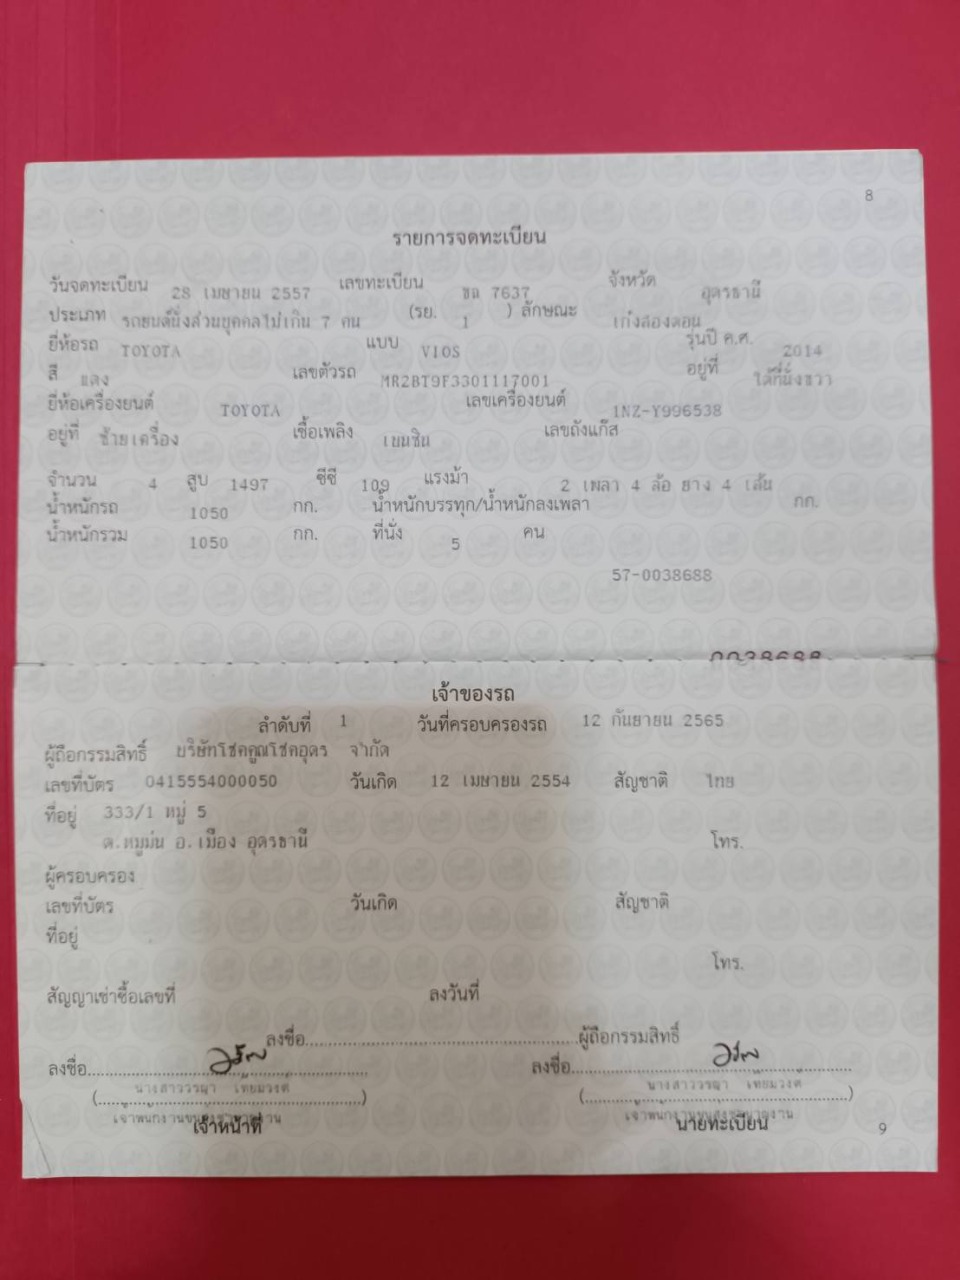 8
รายการจดทะเบียน
วันจดทะเบียน 28 เมษายน 2557 เลขทะเบียน ขฉ 7637 จังหวัด อุดรธานี
ประเภท รถยนต์นั่งส่วนบุคคลไม่เกิน 7 คน (รย. 1 ) ลักษณะ เก๋งสองตอน
ยี่ห้อรถ TOYOTA แบบ VIOS รุ่นปี ค.ศ. 2014
สี แดง เลขตัวรถ MR2BT9F3301117001 อยู่ที่ ใต้ที่นั่งขวา
ยี่ห้อเครื่องยนต์ TOYOTA เลขเครื่องยนต์ 1NZ-Y996538
อยู่ที่ ซ้ายเครื่อง เชื้อเพลิง เบนซิน เลขถังแก๊ส
จำนวน 4 สูบ 1497 ซีซี 109 แรงม้า 2 เพลา 4 ล้อ ยาง 4 เส้น
น้ำหนักรถ 1050 กก. น้ำหนักบรรทุก/น้ำหนักลงเพลา กก.
น้ำหนักรวม 1050 กก. ที่นั่ง 5 คน
57-0038688
0038688
เจ้าของรถ
ลำดับที่ 1 วันที่ครอบครองรถ 12 กันยายน 2565
ผู้ถือกรรมสิทธิ์ บริษัทโชคคูณโชคอุดร จำกัด
เลขที่บัตร 0415554000050 วันเกิด 12 เมษายน 2554 สัญชาติ ไทย
ที่อยู่ 333/1 หมู่ 5
ต.หมูม่น อ.เมือง อุดรธานี โทร.
ผู้ครอบครอง
เลขที่บัตร วันเกิด สัญชาติ
ที่อยู่
โทร.
สัญญาเช่าซื้อเลขที่ ลงวันที่
ลงชื่อ ผู้ถือกรรมสิทธิ์
ลงชื่อ ลงชื่อ
(นางสาววรญา เทียมวงศ์) (นางสาววรญา เทียมวงศ์)
เจ้าพนักงานขนส่งชำนาญงาน เจ้าพนักงานขนส่งชำนาญงาน
เจ้าหน้าที่ นายทะเบียน 9